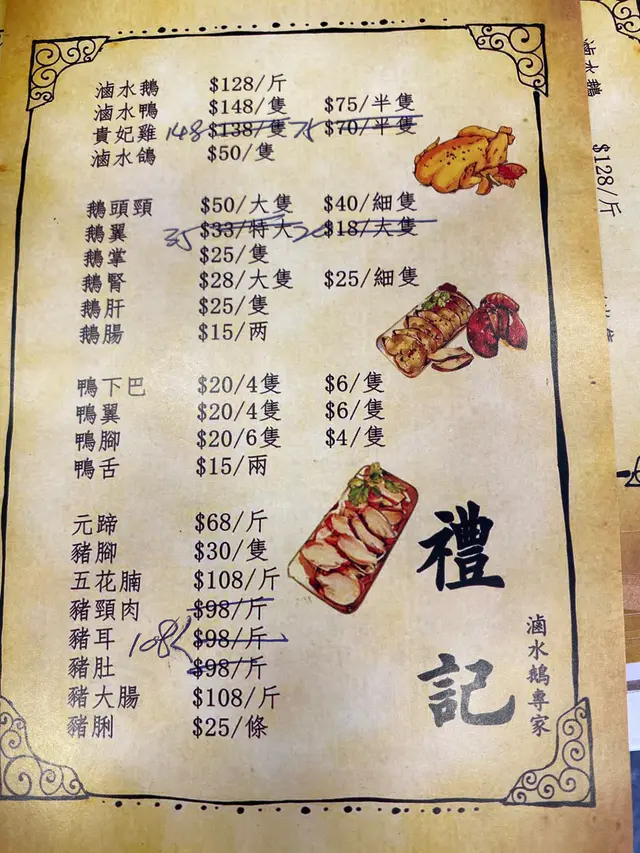 滷水鵝 $128/斤
滷水鴨 $148/隻 $75/半隻
貴妃雞 148 $138/隻 75 $70/半隻
滷水鴿 $50/隻
鵝頭頸 $50/大隻 $40/細隻
鵝翼 35 $33/特大 20 $18/大隻
鵝掌 $25/隻
鵝腎 $28/大隻 $25/細隻
鵝肝 $25/隻
鵝腸 $15/両
鴨下巴 $20/4隻 $6/隻
鴨翼 $20/4隻 $6/隻
鴨腳 $20/6隻 $4/隻
鴨舌 $15/兩
元蹄 $68/斤
豬腳 $30/隻
五花腩 $108/斤
豬頸肉 $98/斤
豬耳 108 $98/斤
豬肚 $98/斤
豬大腸 $108/斤
豬脷 $25/條
禮記
滷水鵝專家
滷水鵝
$128/斤